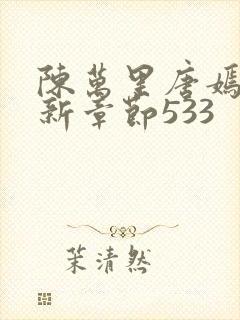 陳萬里唐嫣
新章節533
茉清然